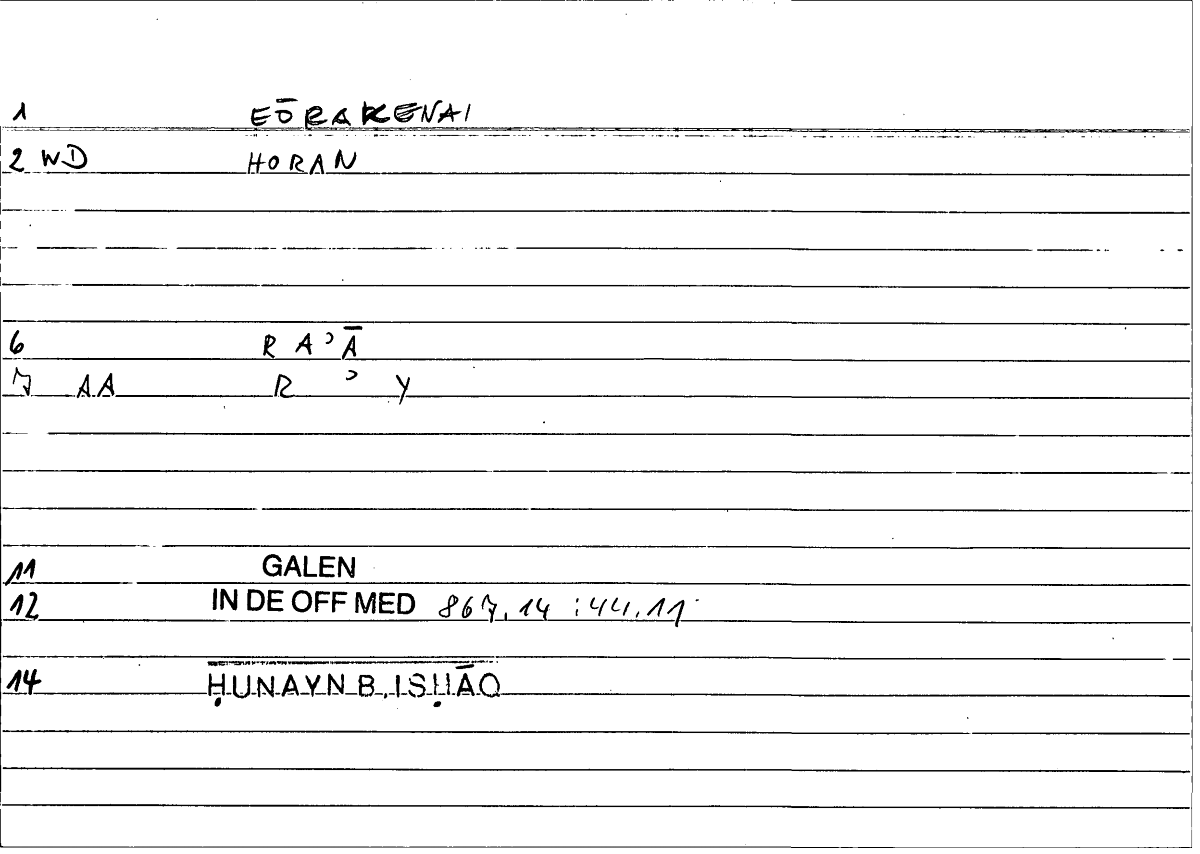 1 EŌRAKENAI
2 WD HORAN
6 R AʾĀ
7 AA R ʾ Y
11 GALEN
12 IN DE OFF MED 867,14 : 44,11
14 ḤUNAYN B. ISḤĀQ